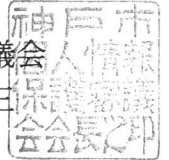 議会
神戸市
人情報
保護審議
会会長之印